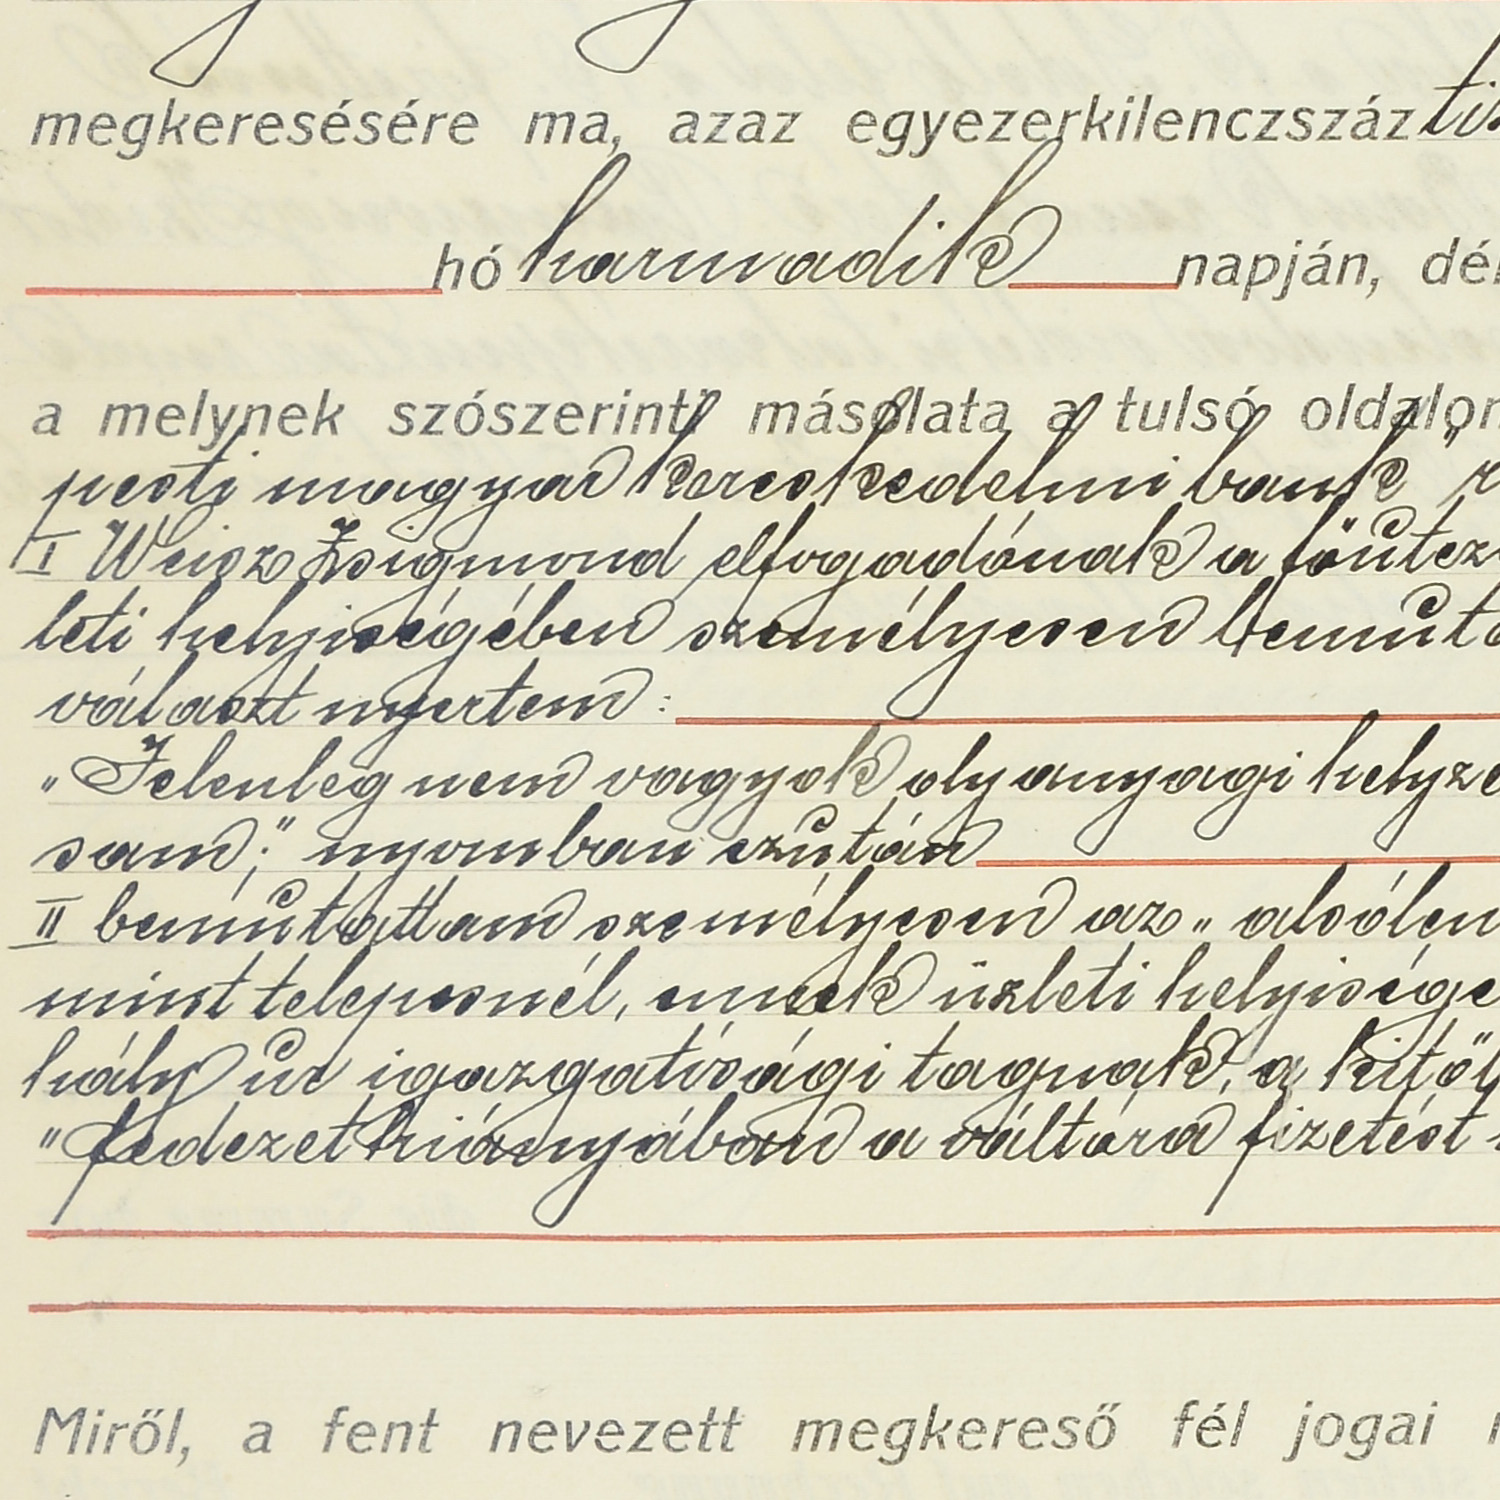 megkeresésére ma, azaz egyezerkilenczszáz
hó harmadik napján, dél
a melynek szószerinti másolata a tulsó oldalon
pesti magyar kereskedelmi bank"
I Weisz Zsigmond elfogadónak a föntez
leti helyiségében személyesen bemuta
választ nyertem:
„Jelenleg nem vagyok oly anyagi helyze
sam;" nyomban ezután
II bemutattam személyesen az „alsólen
mint telepesnél, ennek üzleti helyisége
hály úr igazgatósági tagnak, a kitől
"fedezet hiányában a váltóra fizetést
Miről, a fent nevezett megkereső fél jogai